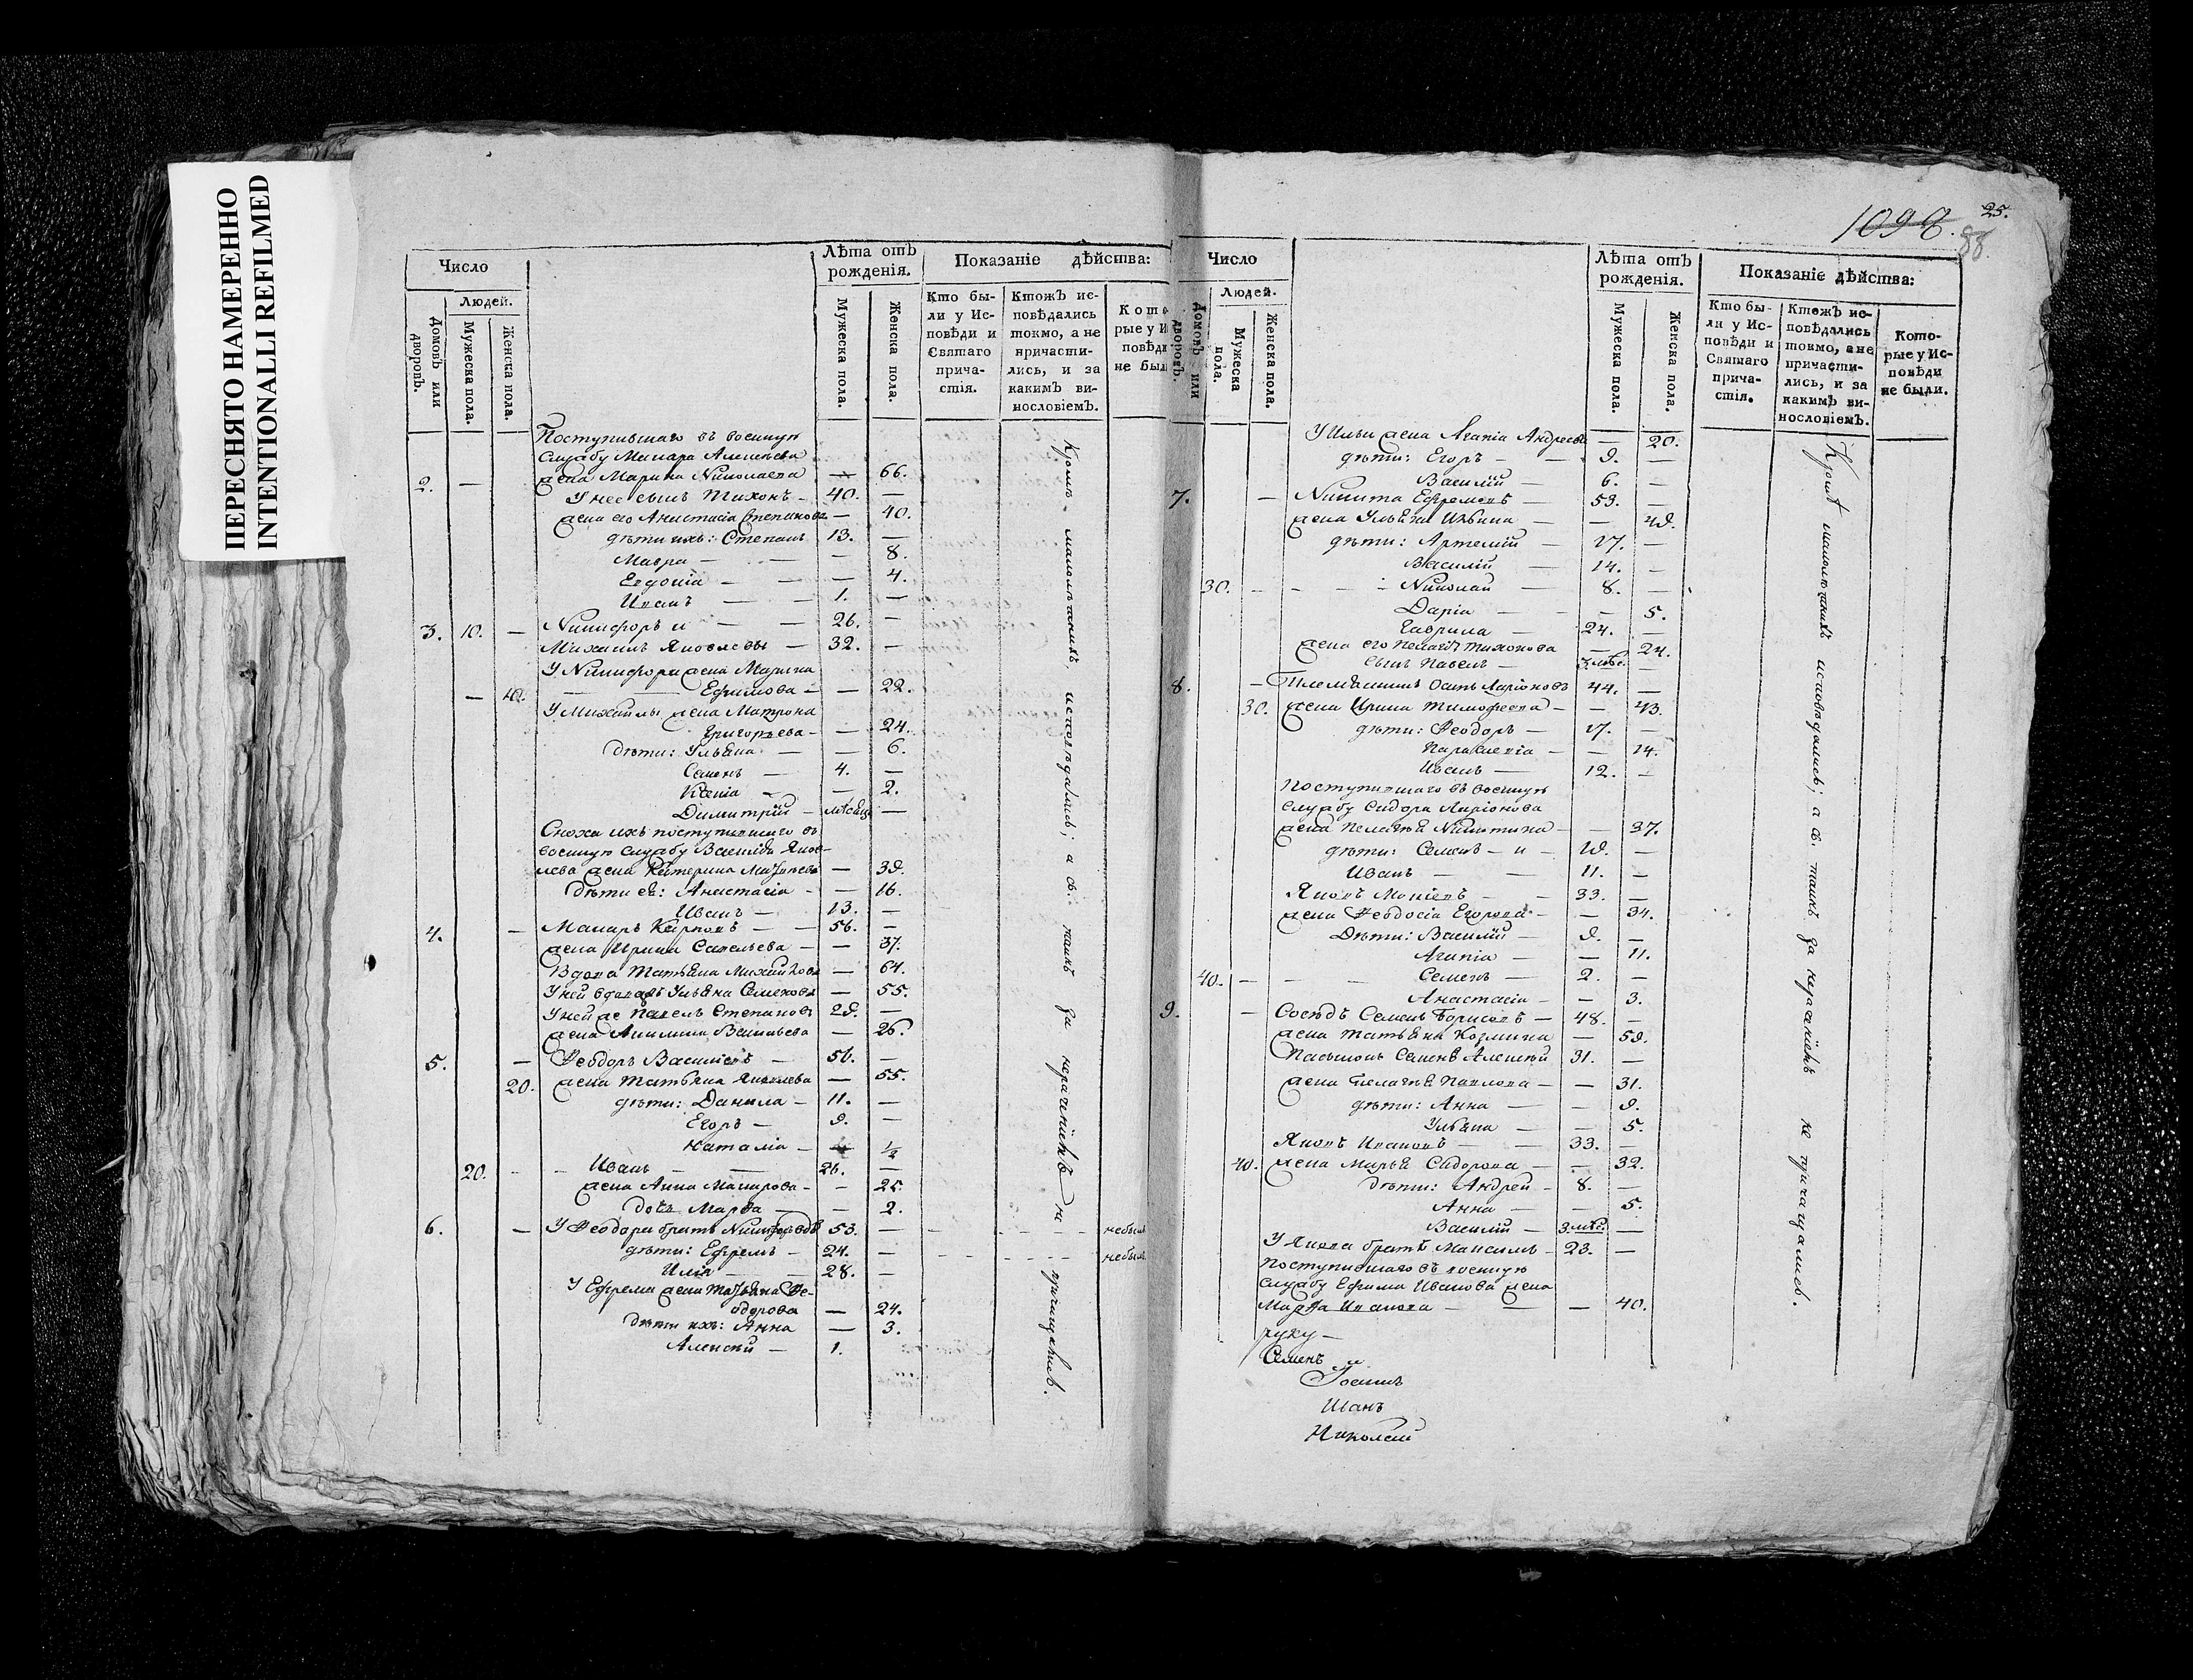 ПЕРЕСНЯТО НАМЕРЕННО
INTENTIONALLI REFILMED
Число
Лѣта отъ рожденія.
Показаніе дѣйства:
Людей.
Домовъ или дворовъ.
Мужеска пола.
Женска пола.
Мужеска пола.
Женска пола.
Кто были у Исповѣди и Святаго причастія.
Ктожъ исповѣдались токмо, а не причастились, и за какимъ винословіемъ.
Кото рые у И повѣди не был
Поступившаго въ военную
службу Макара Алексѣева
2. — жена Марина Николаева — 66.
У нее сынъ Тихонъ — 40. —
жена его Анастасія Степанова — 40.
дѣти ихъ: Степанъ 13. —
Мавра — — 8.
Евдокіа — — 4.
Иванъ — 1. —
3. 10. — Никифоръ и — 26. —
Михаилъ Яковлевы — 32. —
У Никифора жена Марина
— 10. Ефимова — — 22.
У Михайлы жена Матрона
Григорьева — — 24.
дѣти: Ульяна — — 6.
Семенъ — 4. —
Ксенія — — 2.
Димитрій — мѣсяцъ —
Сноха ихъ поступившаго въ
военную службу Василія Яков-
лева жена Катерина — 39.
Дѣти ея: Анастасія — — 16.
Иванъ — 13. —
4. — Макаръ Карповъ — 56. —
жена Ирина Савельева — — 37.
Вдова Татьяна Михайлова — 64.
У ней Ульяна Семенова — 55.
У ней же Павелъ Степановъ 29. —
жена Акилина Васильева — 26.
5. — Ѳеодоръ Васильевъ — 56. —
20. жена Татьяна Яковлева — 55.
дѣти: Данила — 11. —
Егоръ — 9. —
Наталіа — — ½
20. - - Иванъ — 26. —
жена Анна Макарова — — 25.
дочь Марѳа — — 2.
6. — У Ѳеодора братъ 53. — небыл
дѣти: Ефремъ — 24. — небыл
Иліа — 28. —
У Ефрема жена Татьяна Ѳе-
одорова — 24.
Дѣти ихъ: Анна — 3.
Алексѣй — 1.
Кромѣ малолѣтнихъ, исповѣдались; а св: таинъ за нераченіемъ не причащались.
1098.
25.
88.
Число
Лѣта отъ рожденія.
Показаніе дѣйства:
Людей.
Домовъ или дворовъ.
Мужеска пола.
Женска пола.
Мужеска пола.
Женска пола.
Кто были у Исповѣди и Святаго причастія.
Ктожъ исповѣдались токмо, а не причастились, и за какимъ винословіемъ.
Которые у Исповѣди не были.
У Ильи жена Агапіа Андреева — 20.
дѣти: Егоръ — 9. —
Василій 6. —
7. — Никита Ефремовъ — 53. —
жена Ульяна Ильина — — 49.
дѣти: Артемій — 17. —
Василій — 14. —
30. - - - Николай — 8. —
Даріа — — 5.
Гаврила — 24. —
жена его Пелагія Тихонова — 24.
сынъ Павелъ — 3 мѣс. —
8. — Племянникъ Осипъ Ларіоновъ 44. —
30. жена Ирина Тимофеева — — 43.
дѣти: Ѳеодоръ — 17. —
Параскевіа — — 14.
Иванъ — 12. —
Поступившаго въ военную
службу Сидора Ларіонова
жена Пелагѣя Никитина — — 37.
дѣти: Семенъ — и — 19. —
Иванъ — 11. —
Яковъ — 33. —
жена Ѳеодосіа Егорова — — 34.
Дѣти: Василій — 9. —
Агапіа — — 11.
40. — — — Семенъ — 2. —
Анастасіа — — 3.
9. — Сосѣдъ Семенъ Борисовъ — 48. —
жена Татьяна Козмина — 59.
Пасынокъ Семена Алексѣй 31. —
жена Пелагѣя Павлова — — 31.
дѣти: Анна — — 9.
Ульяна — — 5.
Яковъ Ивановъ — 33. —
40. жена Марья Сидорова — — 32.
дѣти: Андрей — 8. —
Анна — — 5.
Василій — 3 мѣс. —
У Якова братъ Максимъ — 23. —
Поступившаго въ военную
службу Ефима Иванова жена
Марѳа Иванова — — 40.
руку —
Семенъ и
Іоаннъ
Иванъ
Николай
Кромѣ малолѣтнихъ исповѣдались; а св: таинъ за нераченіемъ не причащались.